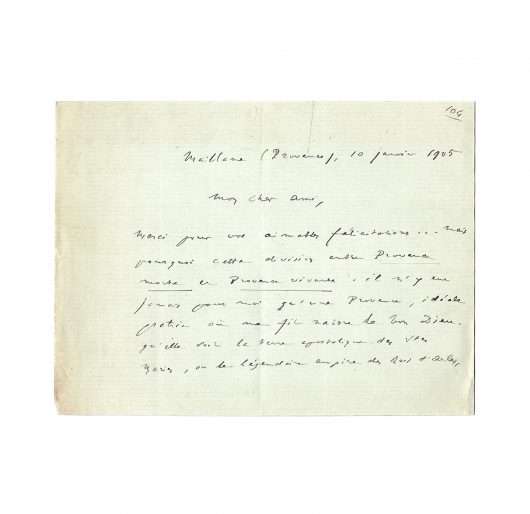 104
Maillane (Provence), 10 janvier 1905
mon cher ami,
merci pour vos aimables félicitations... mais
pourquoi cette division entre Provence
morte et Provence vivante. il n'y eut
jamais pour moi qu'une Provence, idéale
patrie où me fit naître le bon Dieu.
qu'elle soit la terre apostolique des
maries, ou le légendaire empire des Rois d'Arles,